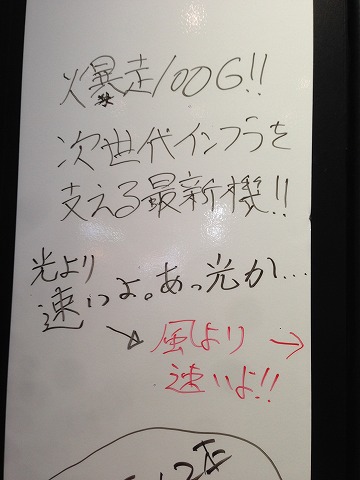 爆走100G!!
次世代インフラを
支える最新機!!
光より
速いよ。あっ光か...
風より
速いよ!!